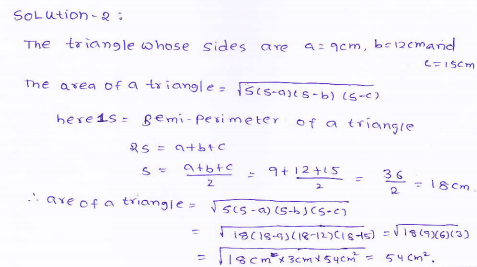 Solution-2:
The triangle whose sides are a=9cm, b=12cm and
c=15cm
The area of a triangle = √s(s-a)(s-b)(s-c)
here 1s = Semi-Perimeter of a triangle
2s = a+b+c
s = a+b+c/2 = 9+12+15/2 = 36/2 = 18cm.
∴ are of a triangle = √s(s-a)(s-b)(s-c)
= √18(18-9)(18-12)(18-15) = √18(9)(6)(3)
= √18cm²×3cm×54cm² = 54cm².